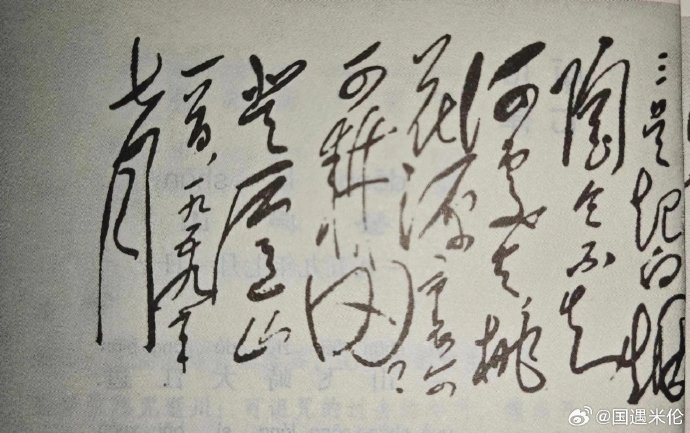 三吴起白烟
陶令不知
何处去,桃
花源里
可耕田?
登庐山
一首,一九五九年
七月
@国遇米伦